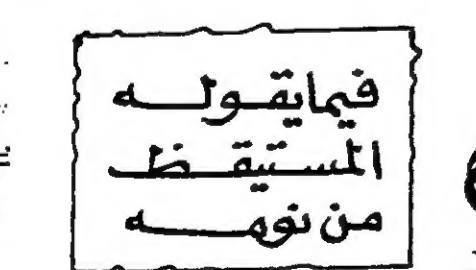 فيما يقوله
المستيقظ
من نومه